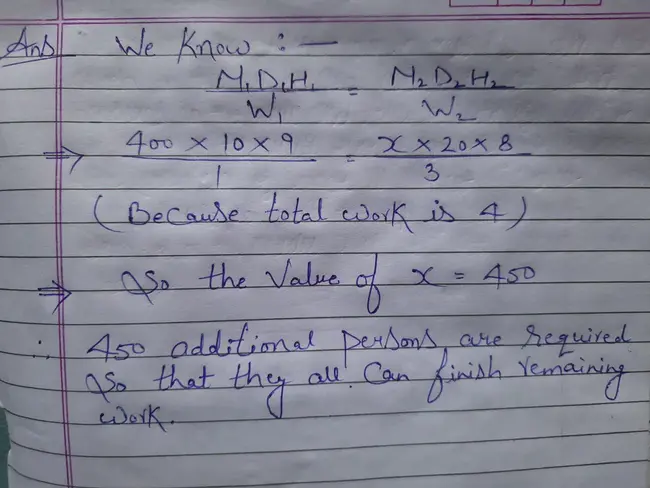 Ans We Know : —
M₁D₁H₁ = M₂D₂H₂
W₁ W₂
⇒ 400 × 10 × 9 = x × 20 × 8
1 3
( Because total work is 4 )
⇒ So the Value of x = 450
∴ 450 additional persons are required
So that they all can finish remaining
work.